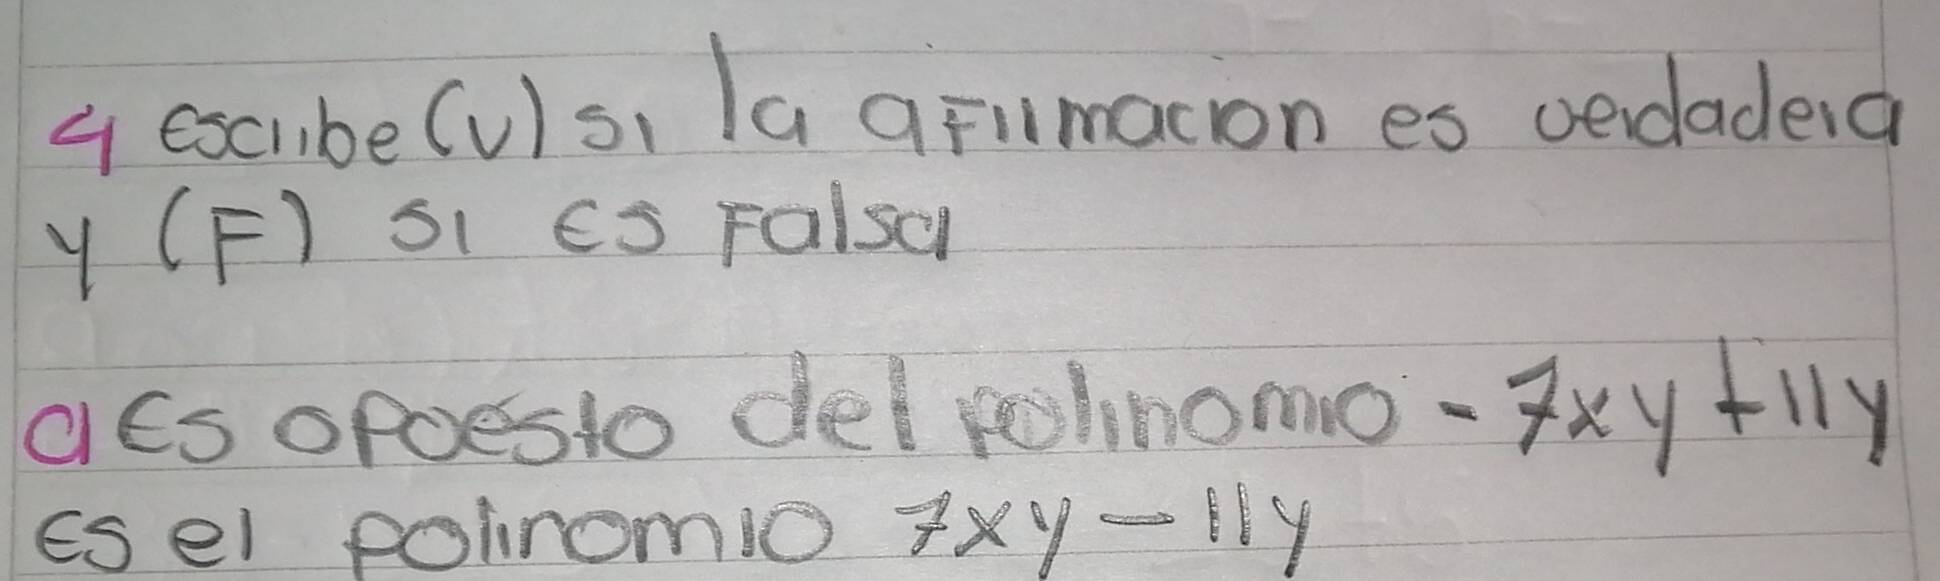 4 escribe (v) si la aFirmacion es verdadera
y (F) si es Falsa
a Es opoesto del polinomio - 7xy + 11y
Es el polinomio 7xy - 11y